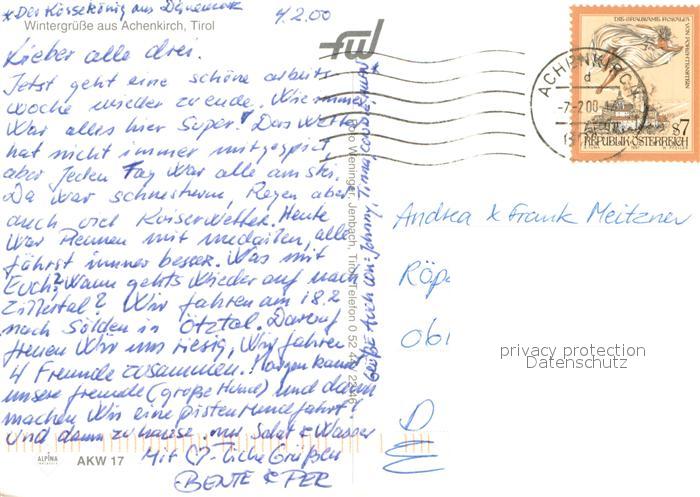 * Der Kössekönig aus Dänemark 4.2.00
Wintergrüße aus Achenkirch, Tirol
Lieber alle drei.
Jetzt geht eine schöne arbeits
woche wieder zu ende. Wie immer
War alles hier Super! Das Wetter
hat nicht immer mitgespielt
aber jeden Tag War alle am ski.
Da War schnesturm, Regen aber
auch viel KaiserWetter. Heute
War Rennen mit medailen, alle
fährst immer besser. Was mit
Euch? Wann gehts Wieder auf nach
Zillertal? Wir fahren am 18.2
nach Sölden in Ötztal. Darauf
freuen Wir uns riesig, Wir fahren
4 Freunde zusammen! Morgen kommen
unsere freunde (große Hund) und dann
machen Wir eine Pisten Hund fahrt!
Und dann zu hause nur Salat & Wasser
Mit ♡-liche Grüßen
BENTE & PER
Grüße Auch von: Johnny,
Foto Wieninger, Jenbach, Tirol, Telefon 0 52 44
fwl
ALPINA
AKW 17
ACHENKIRCH
d
-7.-2.00-17
DIE GRAUSAME ROSALIA
VON FORCHTENSTEIN
S7
REPUBLIK ÖSTERREICH
1997
Andrea & Frank Meitzner
Röp
Obl
D
privacy protection
Datenschutz